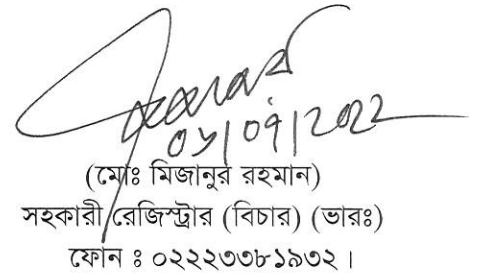 ০১/০৭/২০২২
(মোঃ মিজানুর রহমান)
সহকারী রেজিস্ট্রার (বিচার) (ভারঃ)
ফোন ঃ ০২২২৩৩৮১৯৩২।